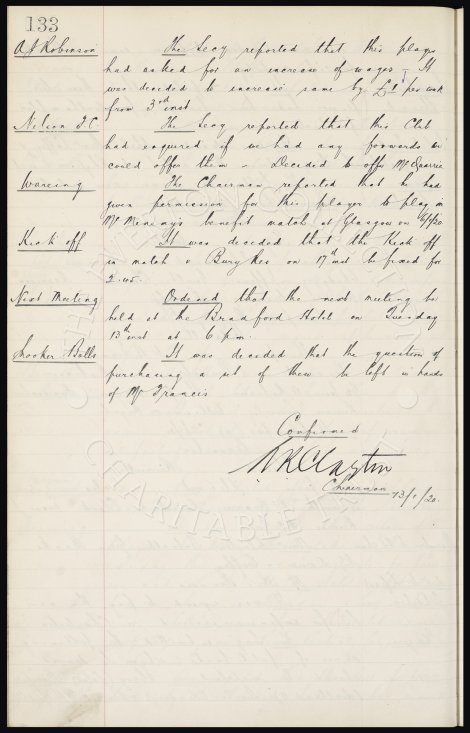 133
A J Robinson The Secy reported that this player
had asked for an increase of wages. It
was decided to increase same by £1 per week
from 3rd inst
Nelson F.C The Secy reported that this Club
had enquired if we had any forwards we
could offer them – Decided to offer Mr
Wareing The Chairman reported that he had
given permission for this player to play in
Mr benefit match at Glasgow on
Kick off It was decided that the Kick off
in match v Bury Res on 17th inst be fixed for
2.45.
Next Meeting Ordered that the next meeting be
held at the Bradford Hotel on Tuesday
13th inst at 6 p.m.
Snooker Balls It was decided that the question of
purchasing a set of them be left in hands
of Mr Francis
Confirmed
Clayton
Chairman 13/1/20.
CHARITABLE